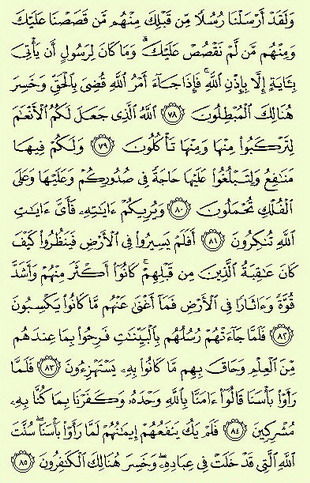 وَلَقَدْ أَرْسَلْنَا رُسُلًا مِّن قَبْلِكَ مِنْهُم مَّن قَصَصْنَا عَلَيْكَ
وَمِنْهُم مَّن لَّمْ نَقْصُصْ عَلَيْكَ ۗ وَمَا كَانَ لِرَسُولٍ أَن يَأْتِىَ
بِـَٔايَةٍ إِلَّا بِإِذْنِ ٱللَّهِ ۚ فَإِذَا جَآءَ أَمْرُ ٱللَّهِ قُضِىَ بِٱلْحَقِّ وَخَسِرَ
هُنَالِكَ ٱلْمُبْطِلُونَ ﴿٧٨﴾ ٱللَّهُ ٱلَّذِى جَعَلَ لَكُمُ ٱلْأَنْعَٰمَ
لِتَرْكَبُوا۟ مِنْهَا وَمِنْهَا تَأْكُلُونَ ﴿٧٩﴾ وَلَكُمْ فِيهَا
مَنَٰفِعُ وَلِتَبْلُغُوا۟ عَلَيْهَا حَاجَةً فِى صُدُورِكُمْ وَعَلَيْهَا وَعَلَى
ٱلْفُلْكِ تُحْمَلُونَ ﴿٨٠﴾ وَيُرِيكُمْ ءَايَٰتِهِۦ فَأَىَّ ءَايَٰتِ
ٱللَّهِ تُنكِرُونَ ﴿٨١﴾ أَفَلَمْ يَسِيرُوا۟ فِى ٱلْأَرْضِ فَيَنظُرُوا۟ كَيْفَ
كَانَ عَٰقِبَةُ ٱلَّذِينَ مِن قَبْلِهِمْ ۚ كَانُوٓا۟ أَكْثَرَ مِنْهُمْ وَأَشَدَّ
قُوَّةً وَءَاثَارًا فِى ٱلْأَرْضِ فَمَآ أَغْنَىٰ عَنْهُم مَّا كَانُوا۟ يَكْسِبُونَ
﴿٨٢﴾ فَلَمَّا جَآءَتْهُمْ رُسُلُهُم بِٱلْبَيِّنَٰتِ فَرِحُوا۟ بِمَا عِندَهُم
مِّنَ ٱلْعِلْمِ وَحَاقَ بِهِم مَّا كَانُوا۟ بِهِۦ يَسْتَهْزِءُونَ ﴿٨٣﴾ فَلَمَّا
رَأَوْا۟ بَأْسَنَا قَالُوٓا۟ ءَامَنَّا بِٱللَّهِ وَحْدَهُۥ وَكَفَرْنَا بِمَا كُنَّا بِهِۦ
مُشْرِكِينَ ﴿٨٤﴾ فَلَمْ يَكُ يَنفَعُهُمْ إِيمَٰنُهُمْ لَمَّا رَأَوْا۟ بَأْسَنَا ۖ سُنَّتَ
ٱللَّهِ ٱلَّتِى قَدْ خَلَتْ فِى عِبَادِهِۦ ۖ وَخَسِرَ هُنَالِكَ ٱلْكَٰفِرُونَ ﴿٨٥﴾